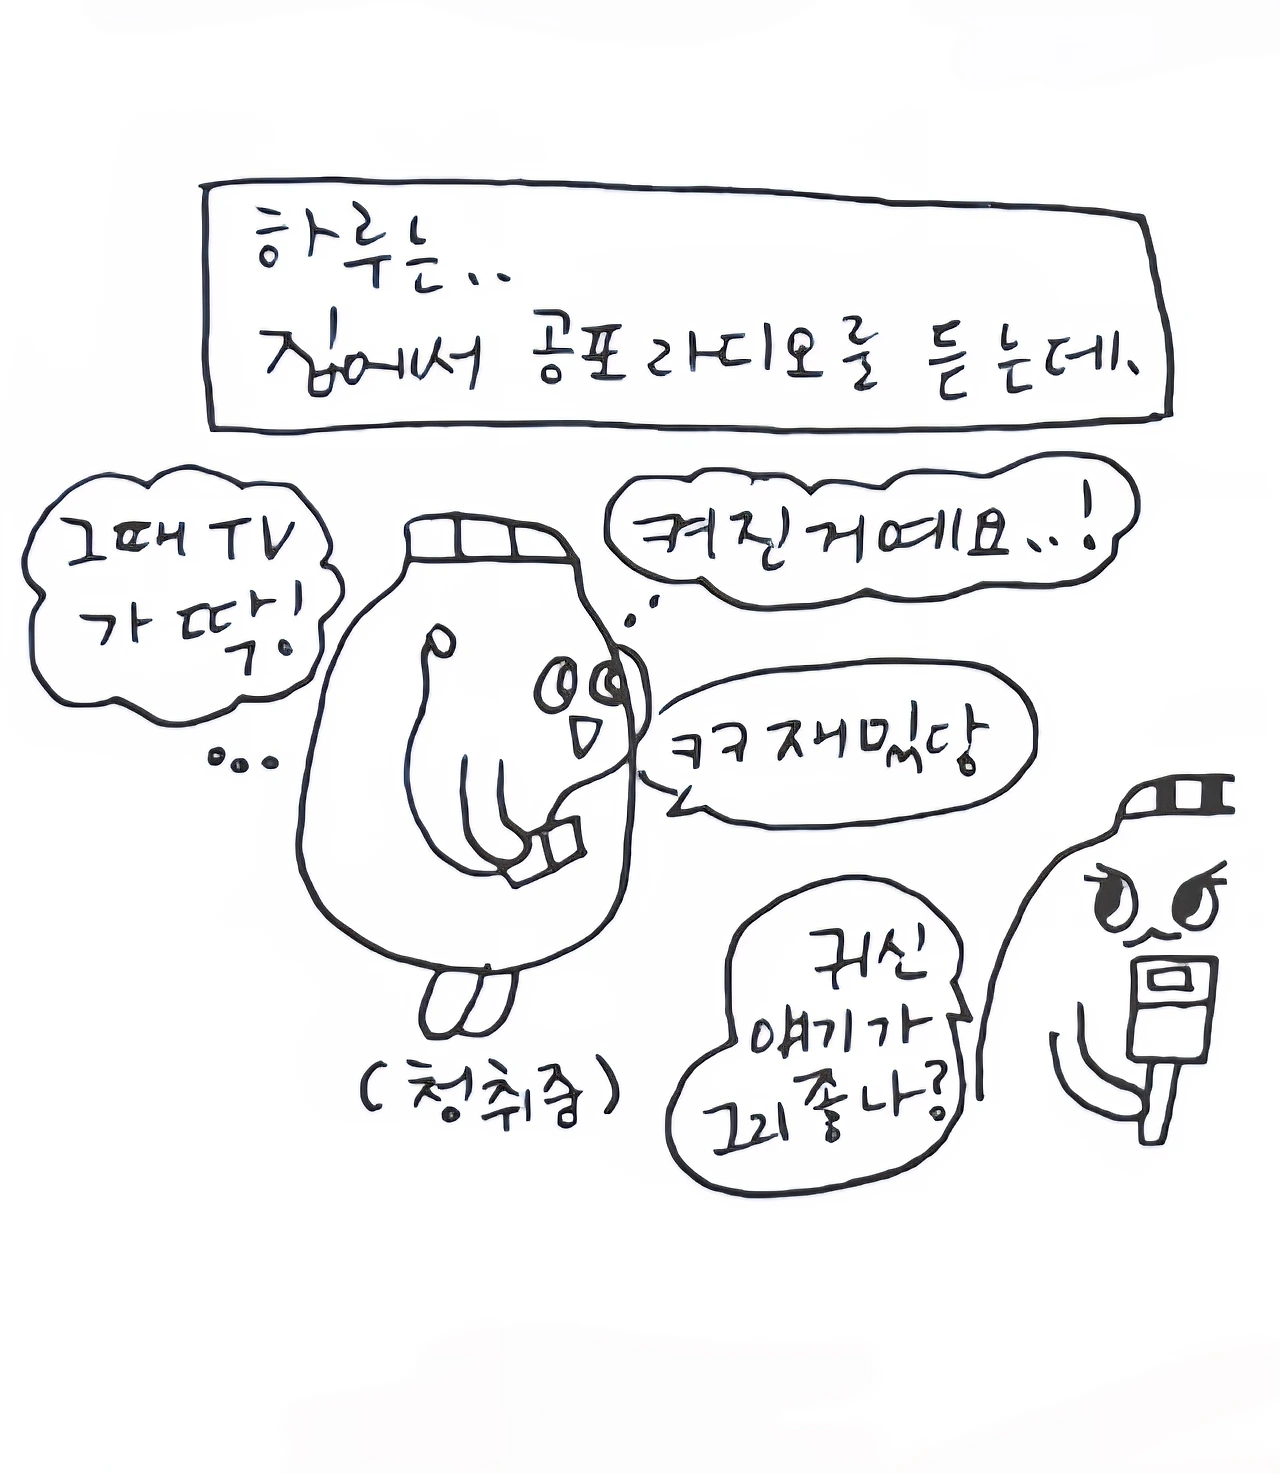 하루는..
집에서 공포라디오를 듣는데..
그때 TV
가 딱!
켜진거예요..!
ㅋㅋ재밌당
(청취중)
귀신
얘기가
그리좋나?